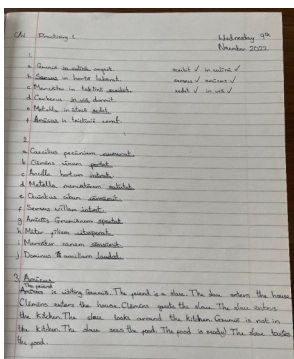 Practising 1 Wednesday 9th
November 2022
1.
a Grumio coquit. scribit ✓ in culina ✓
b Servus in horto laborat. servus ✓ amicus ✓
c Mercator in tablino scribit. sedet ✓ in via ✓
d Cerberus in via dormit
e Metella in atrio sedet.
f Amicus in triclinio cenat.
2.
a Caecilius pecuniam numerat.
b Clemens vinum portat.
c Ancilla hortum intrat.
d Metella mercatorem salutat.
e Quintus cibum
f Servus villam intrat.
g Amicus Grumionem spectat.
h Mater filium vituperat.
i Mercator canem
j Dominus ancillam laudat.
3 Amicus
The friend
is visiting Grumio. The friend is a slave. The slave enters the house.
Clemens enters the house. Clemens greets the slave. The slave enters
the kitchen. The slave looks around the kitchen. Grumio is not in
the kitchen. The slave sees the food. The food is ready! The slave tastes
the food.